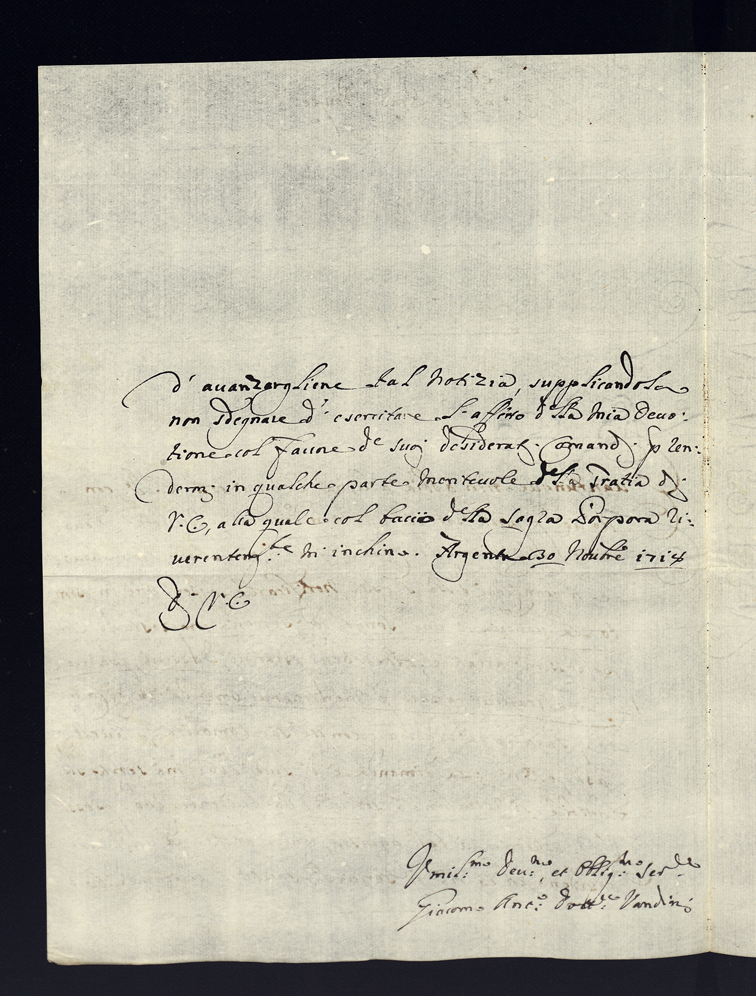 d' auanzargliene tal Notizia, supplicandola
non sdegnare d' esercitare l' affetto della mia deuo:
tione col fauore de suoj desideratj Comandj p ren:
dermj in qualche parte meriteuole della Gratia dj
V. E, alla quale col bacio della sagra Porpora ri:
uerentem:te m' inchino. Argenta 30 Noubre 1714
Di V. E
Vmil:mo Deu:mo, et Obblig:mo Ser:re
Giacomo Ant:o Dott:re Vandini